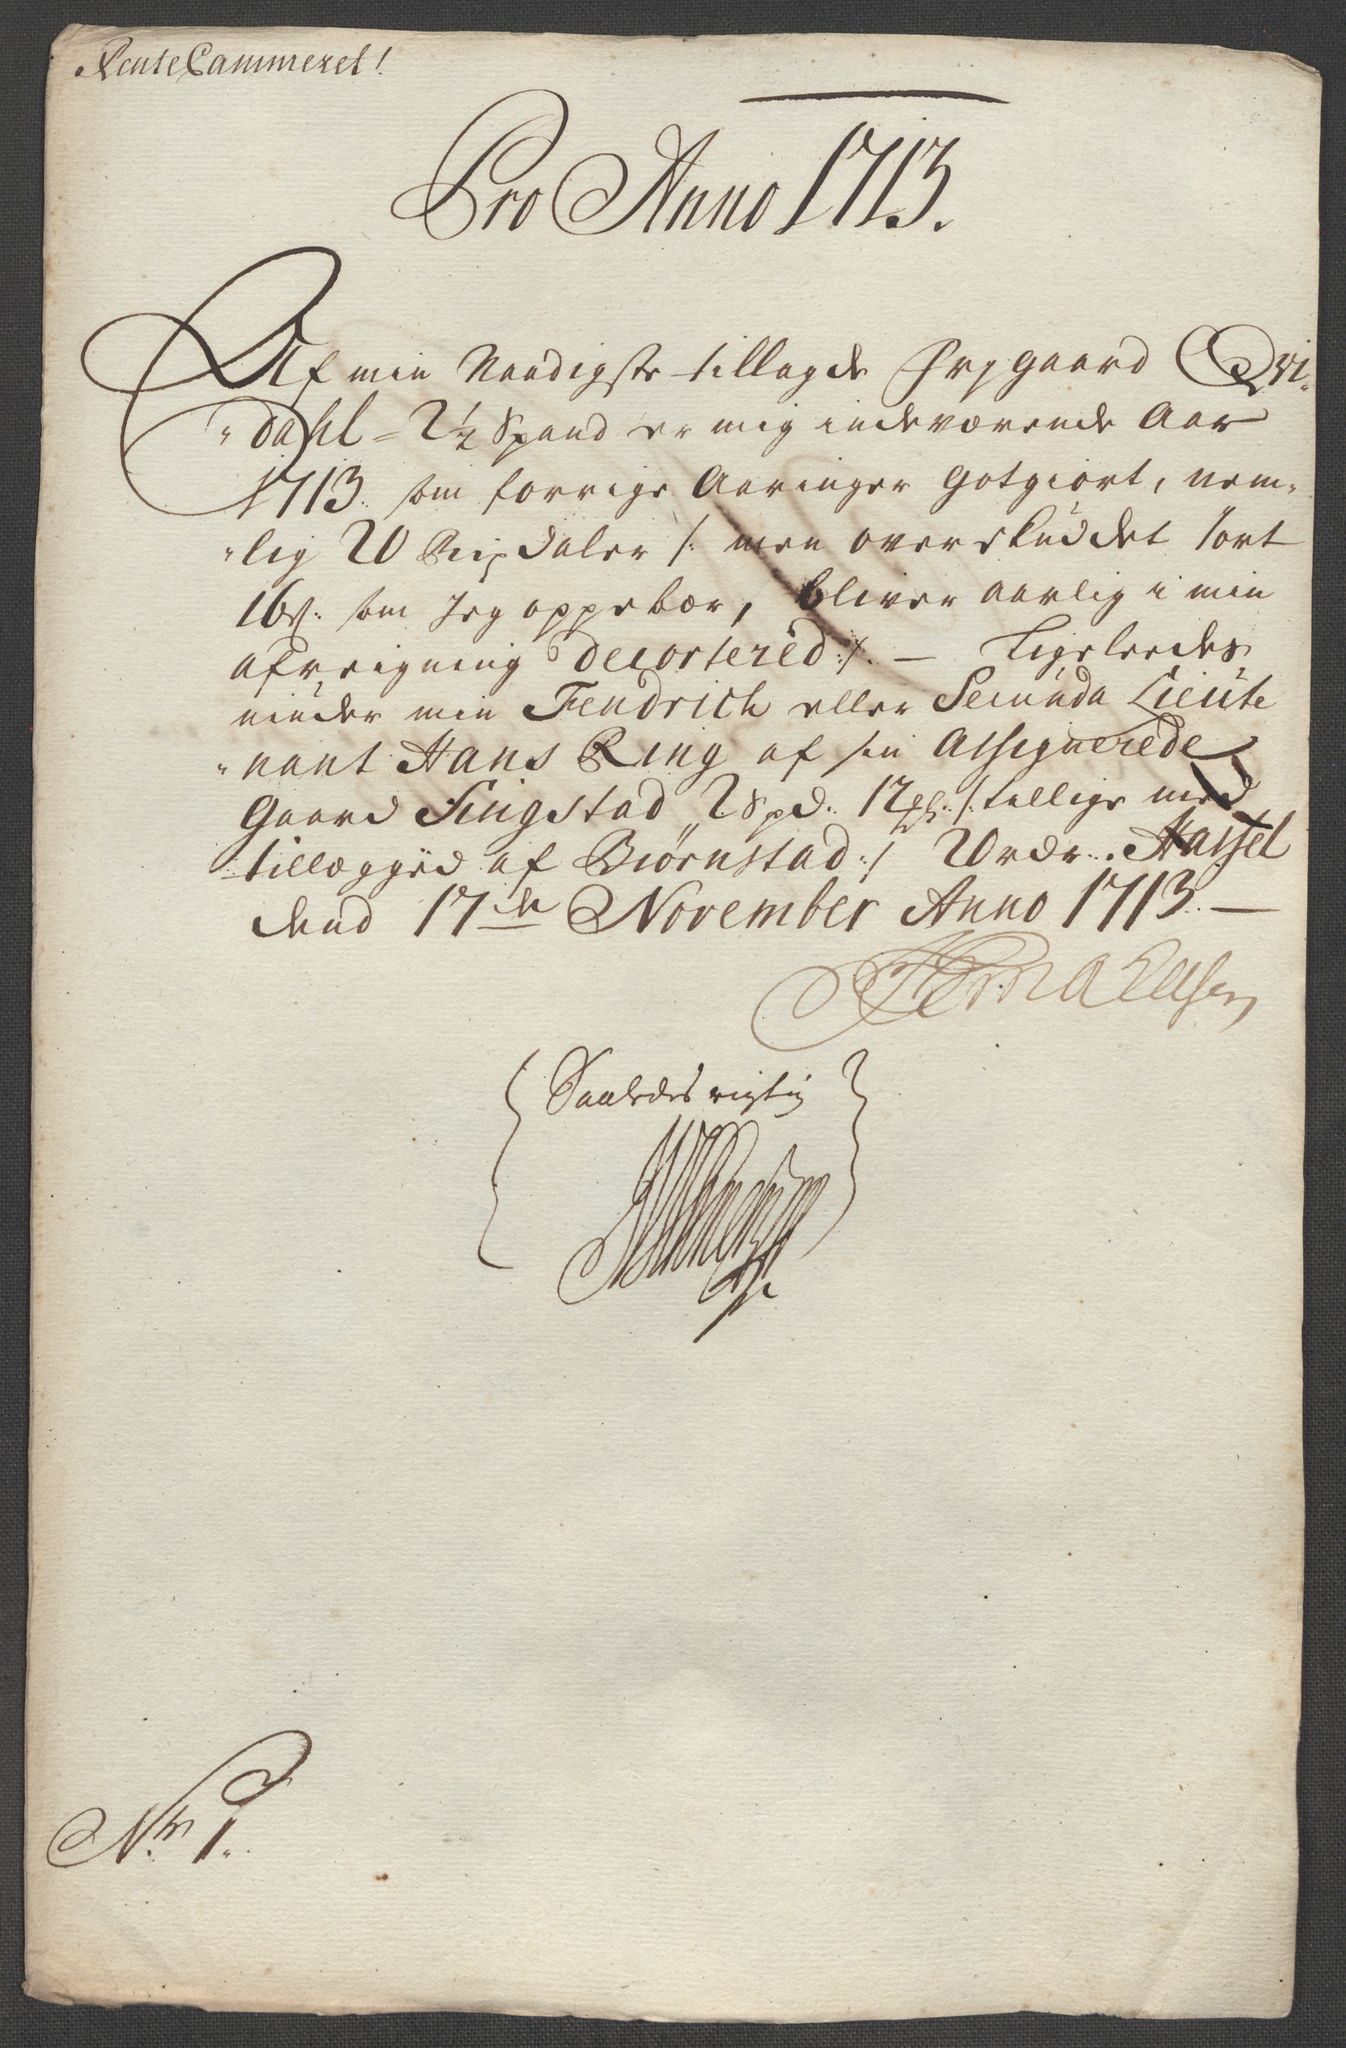 RenteCammeret!
Pro Anno 1713.
Af min Naadigste tillagde Frygaard Qvi-
dahl = 2½ Spand er mig indeværende Aar
1713. som forrige Aaringer Gotgiort, nem-
lig 20 Rixdaler /: men overskuddet /ort
16 s: som Jeg oppebær, bliver aarlig i min
afreigning decortered :/. — Ligeleedes
niuder min Fendrich eller Secunda Lieute
nant Hans Ring af sin Assignerede
Gaard Fingstad 2 Spd: 12 /: tillige med
tillægged af Biørnstad :/ 20 rdr. Hassel
dend 17de November Anno 1713. —
Saaledes rigtig
No 1.